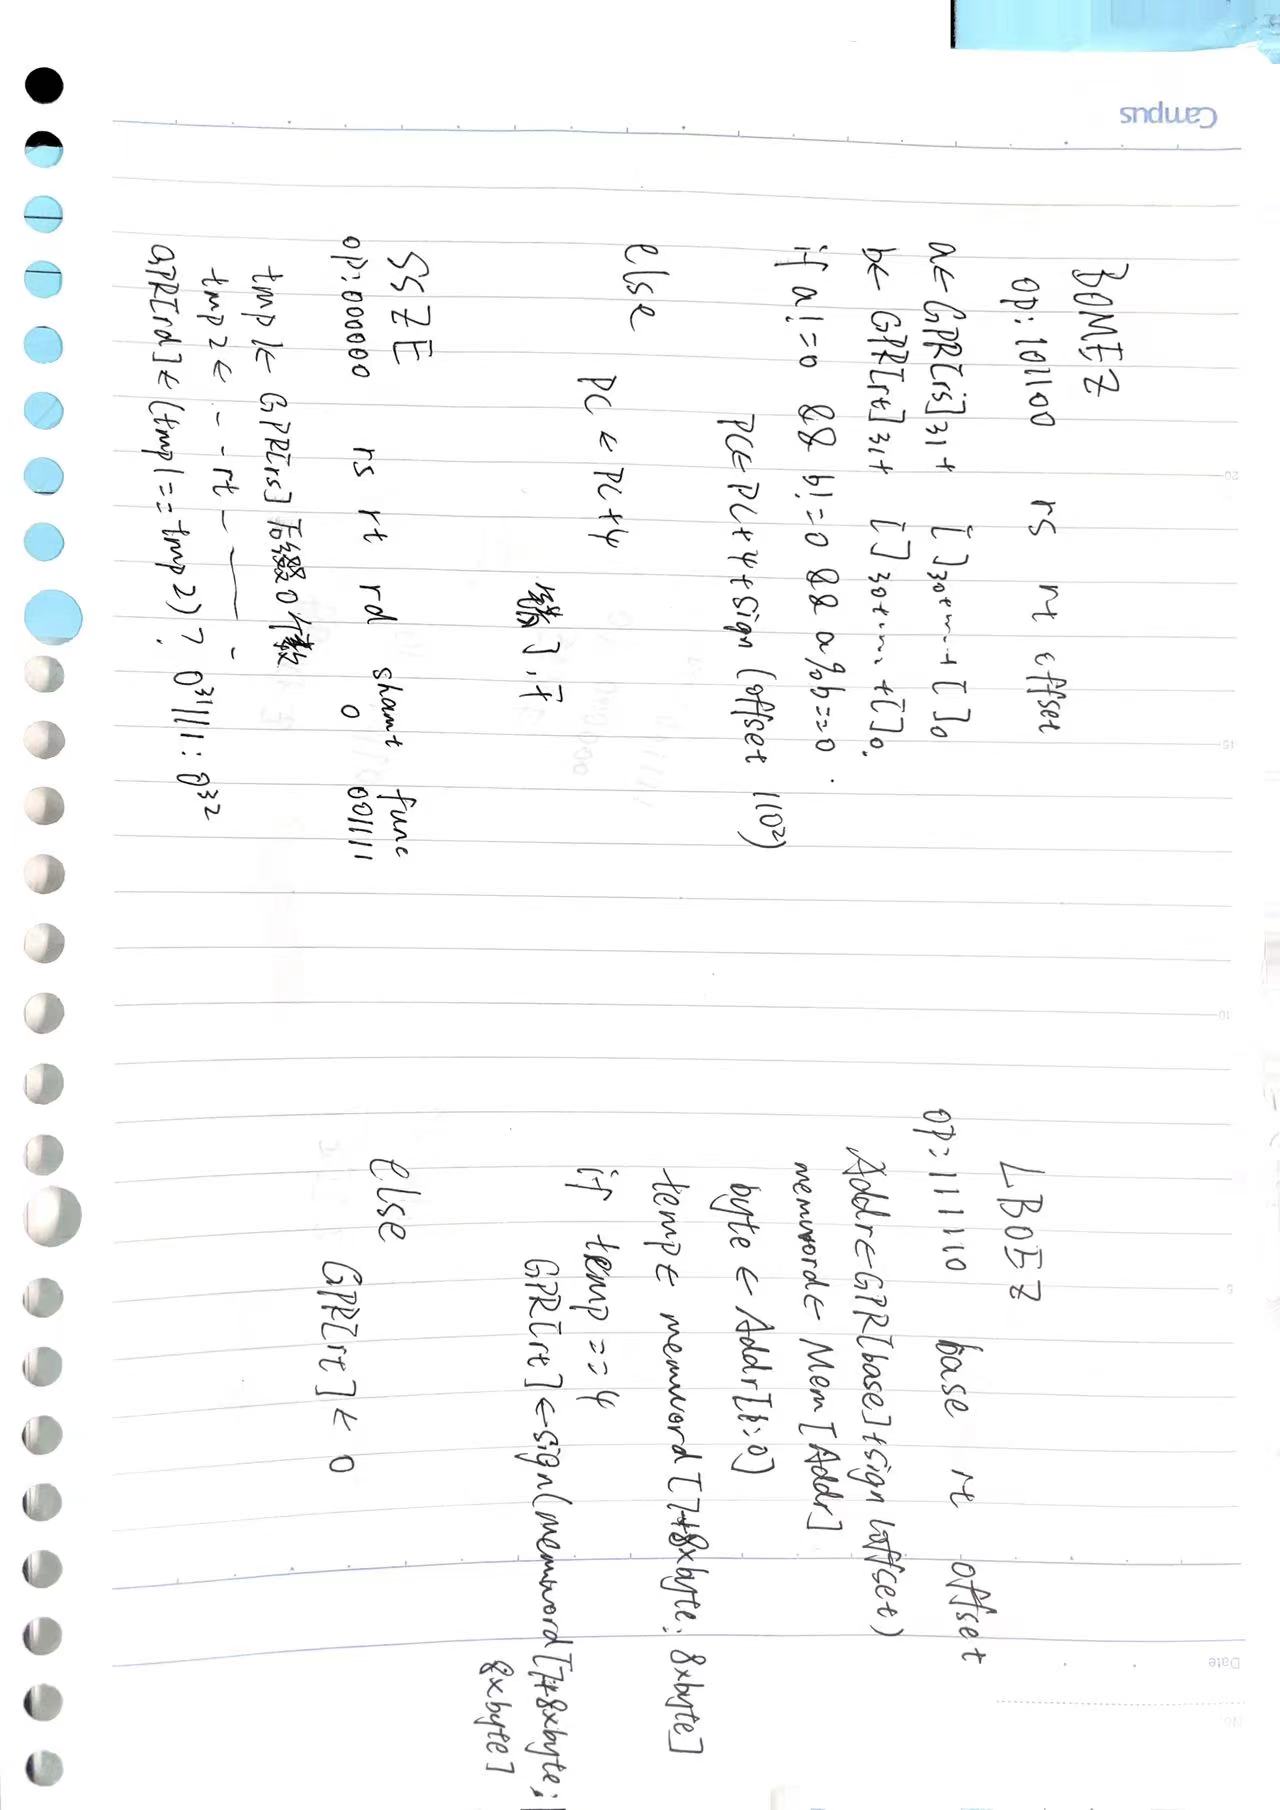 Campus
No.
Date
20
15
10
5
BOMEZ
op: 101100 rs rt offset
a← GPR[rs]31+ [ ]30+...+[ ]0
b← GPR[rt]31+ [ ]30+...+[ ]0.
if a!=0 && b!=0 && a%b==0
PC← PC+4+sign(offset 110²)
else
PC ← PC+4
错了,干
SSZE
op:000000 rs rt rd shamt func
0 001111
tmp1← GPR[rs]后缀0个数
tmp2← - - rt - — -
GPR[rd]← (tmp1==tmp2)? 0³¹||1:0³²
LBOEZ
op:111110 base rt offset
Addr←GPR[base]+sign(offset)
memword← Mem[Addr]
byte ← Addr[1:0]
temp← memword[7+8×byte:8×byte]
if temp==4
GPR[rt]←sign(memword[7+8×byte:
8×byte]
else
GPR[rt]← 0